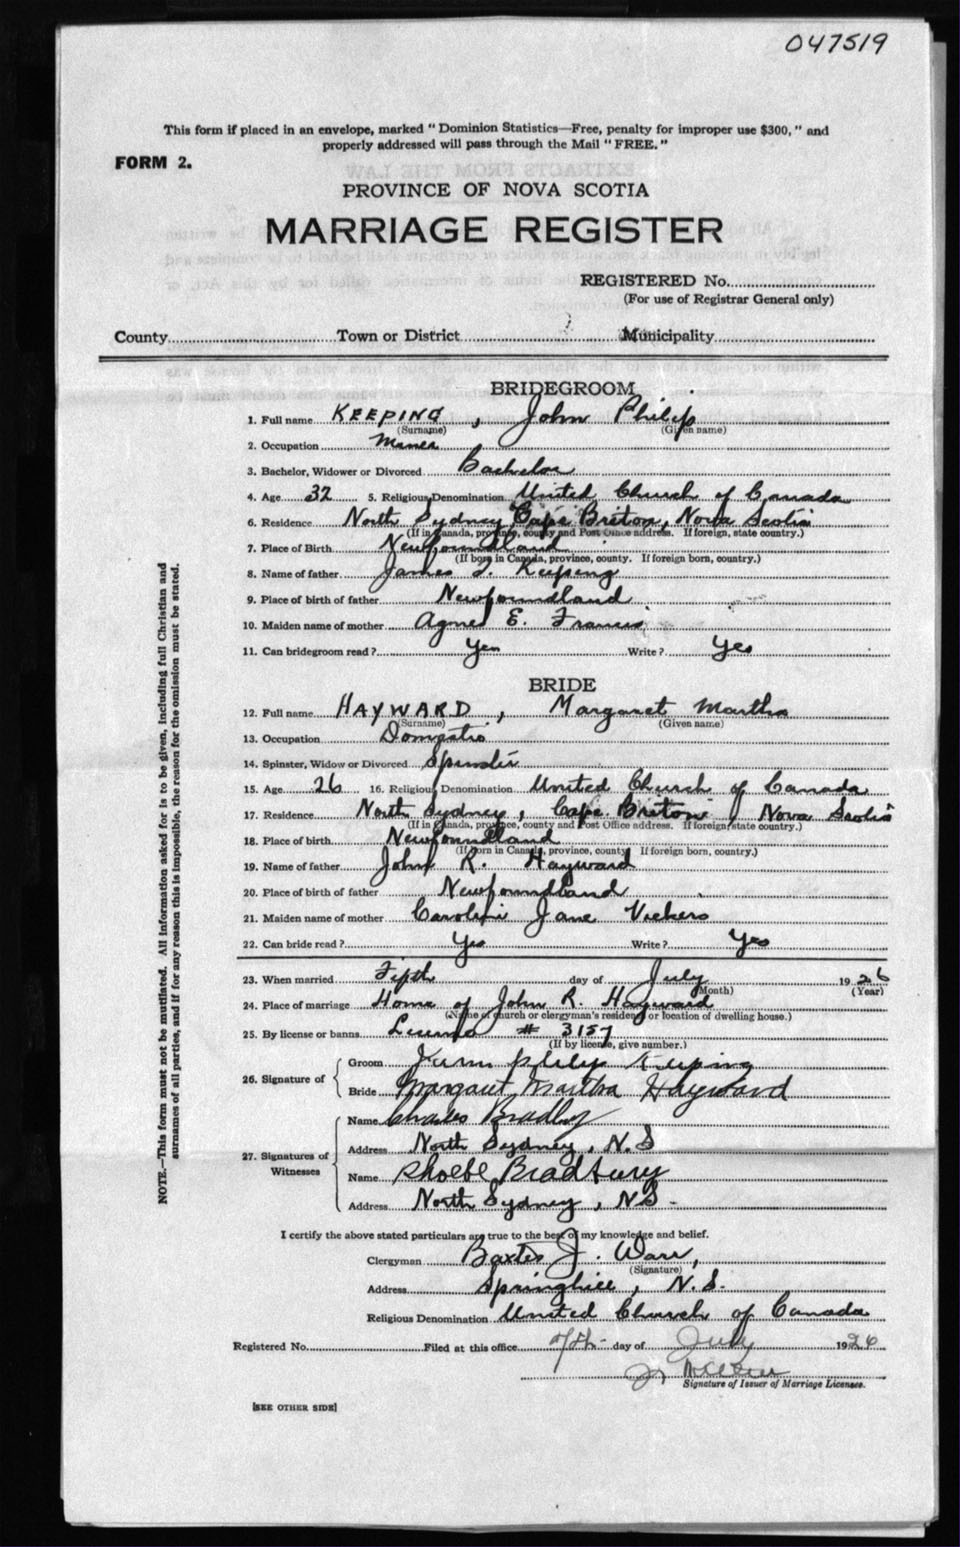 047519
This form if placed in an envelope, marked "Dominion Statistics—Free, penalty for improper use $300," and
properly addressed will pass through the Mail "FREE."
FORM 2.
PROVINCE OF NOVA SCOTIA
MARRIAGE REGISTER
REGISTERED No.
(For use of Registrar General only)
County Town or District Municipality
BRIDEGROOM
1. Full name KEEPING, John Philip
(Surname) (Given name)
2. Occupation Miner
3. Bachelor, Widower or Divorced Bachelor
4. Age 32 5. Religious Denomination United Church of Canada
6. Residence North Sydney, Cape Breton, Nova Scotia
(If in Canada, province, county and Post Office address. If foreign, state country.)
7. Place of Birth Newfoundland
(If born in Canada, province, county. If foreign born, country.)
8. Name of father James T. Keeping
9. Place of birth of father Newfoundland
10. Maiden name of mother Agnes E. Francis
11. Can bridegroom read? Yes Write? Yes
BRIDE
12. Full name HAYWARD, Margaret Martha
(Surname) (Given name)
13. Occupation Domestic
14. Spinster, Widow or Divorced Spinster
15. Age 26 16. Religious Denomination United Church of Canada
17. Residence North Sydney, Cape Breton, Nova Scotia
(If in Canada, province, county and Post Office address. If foreign, state country.)
18. Place of birth Newfoundland
(If born in Canada, province, county If foreign born, country.)
19. Name of father John R. Hayward
20. Place of birth of father Newfoundland
21. Maiden name of mother Caroline Jane Vickers
22. Can bride read? Yes Write? Yes
23. When married Fifth day of July 1926
(Month) (Year)
24. Place of marriage Home of John R. Hayward
(Name of church or clergyman's residence or location of dwelling house.)
25. By license or banns License # 3157
(If by license, give number.)
26. Signature of Groom John Philip Keeping
Bride Margaret Martha Hayward
27. Signatures of Witnesses Name Charles Bradley
Address North Sydney, N.S
Name Phoebe Bradbury
Address North Sydney, N.S.
I certify the above stated particulars are true to the best of my knowledge and belief.
Clergyman Baxter J. Warr,
(Signature)
Address Springhill, N.S.
Religious Denomination United Church of Canada
Registered No. Filed at this office 7th day of July 1926
Signature of Issuer of Marriage Licenses.
[SEE OTHER SIDE]
NOTE.—This form must not be mutilated. All information asked for is to be given, including full Christian and
surnames of all parties, and if for any reason this is impossible, the reason for the omission must be stated.